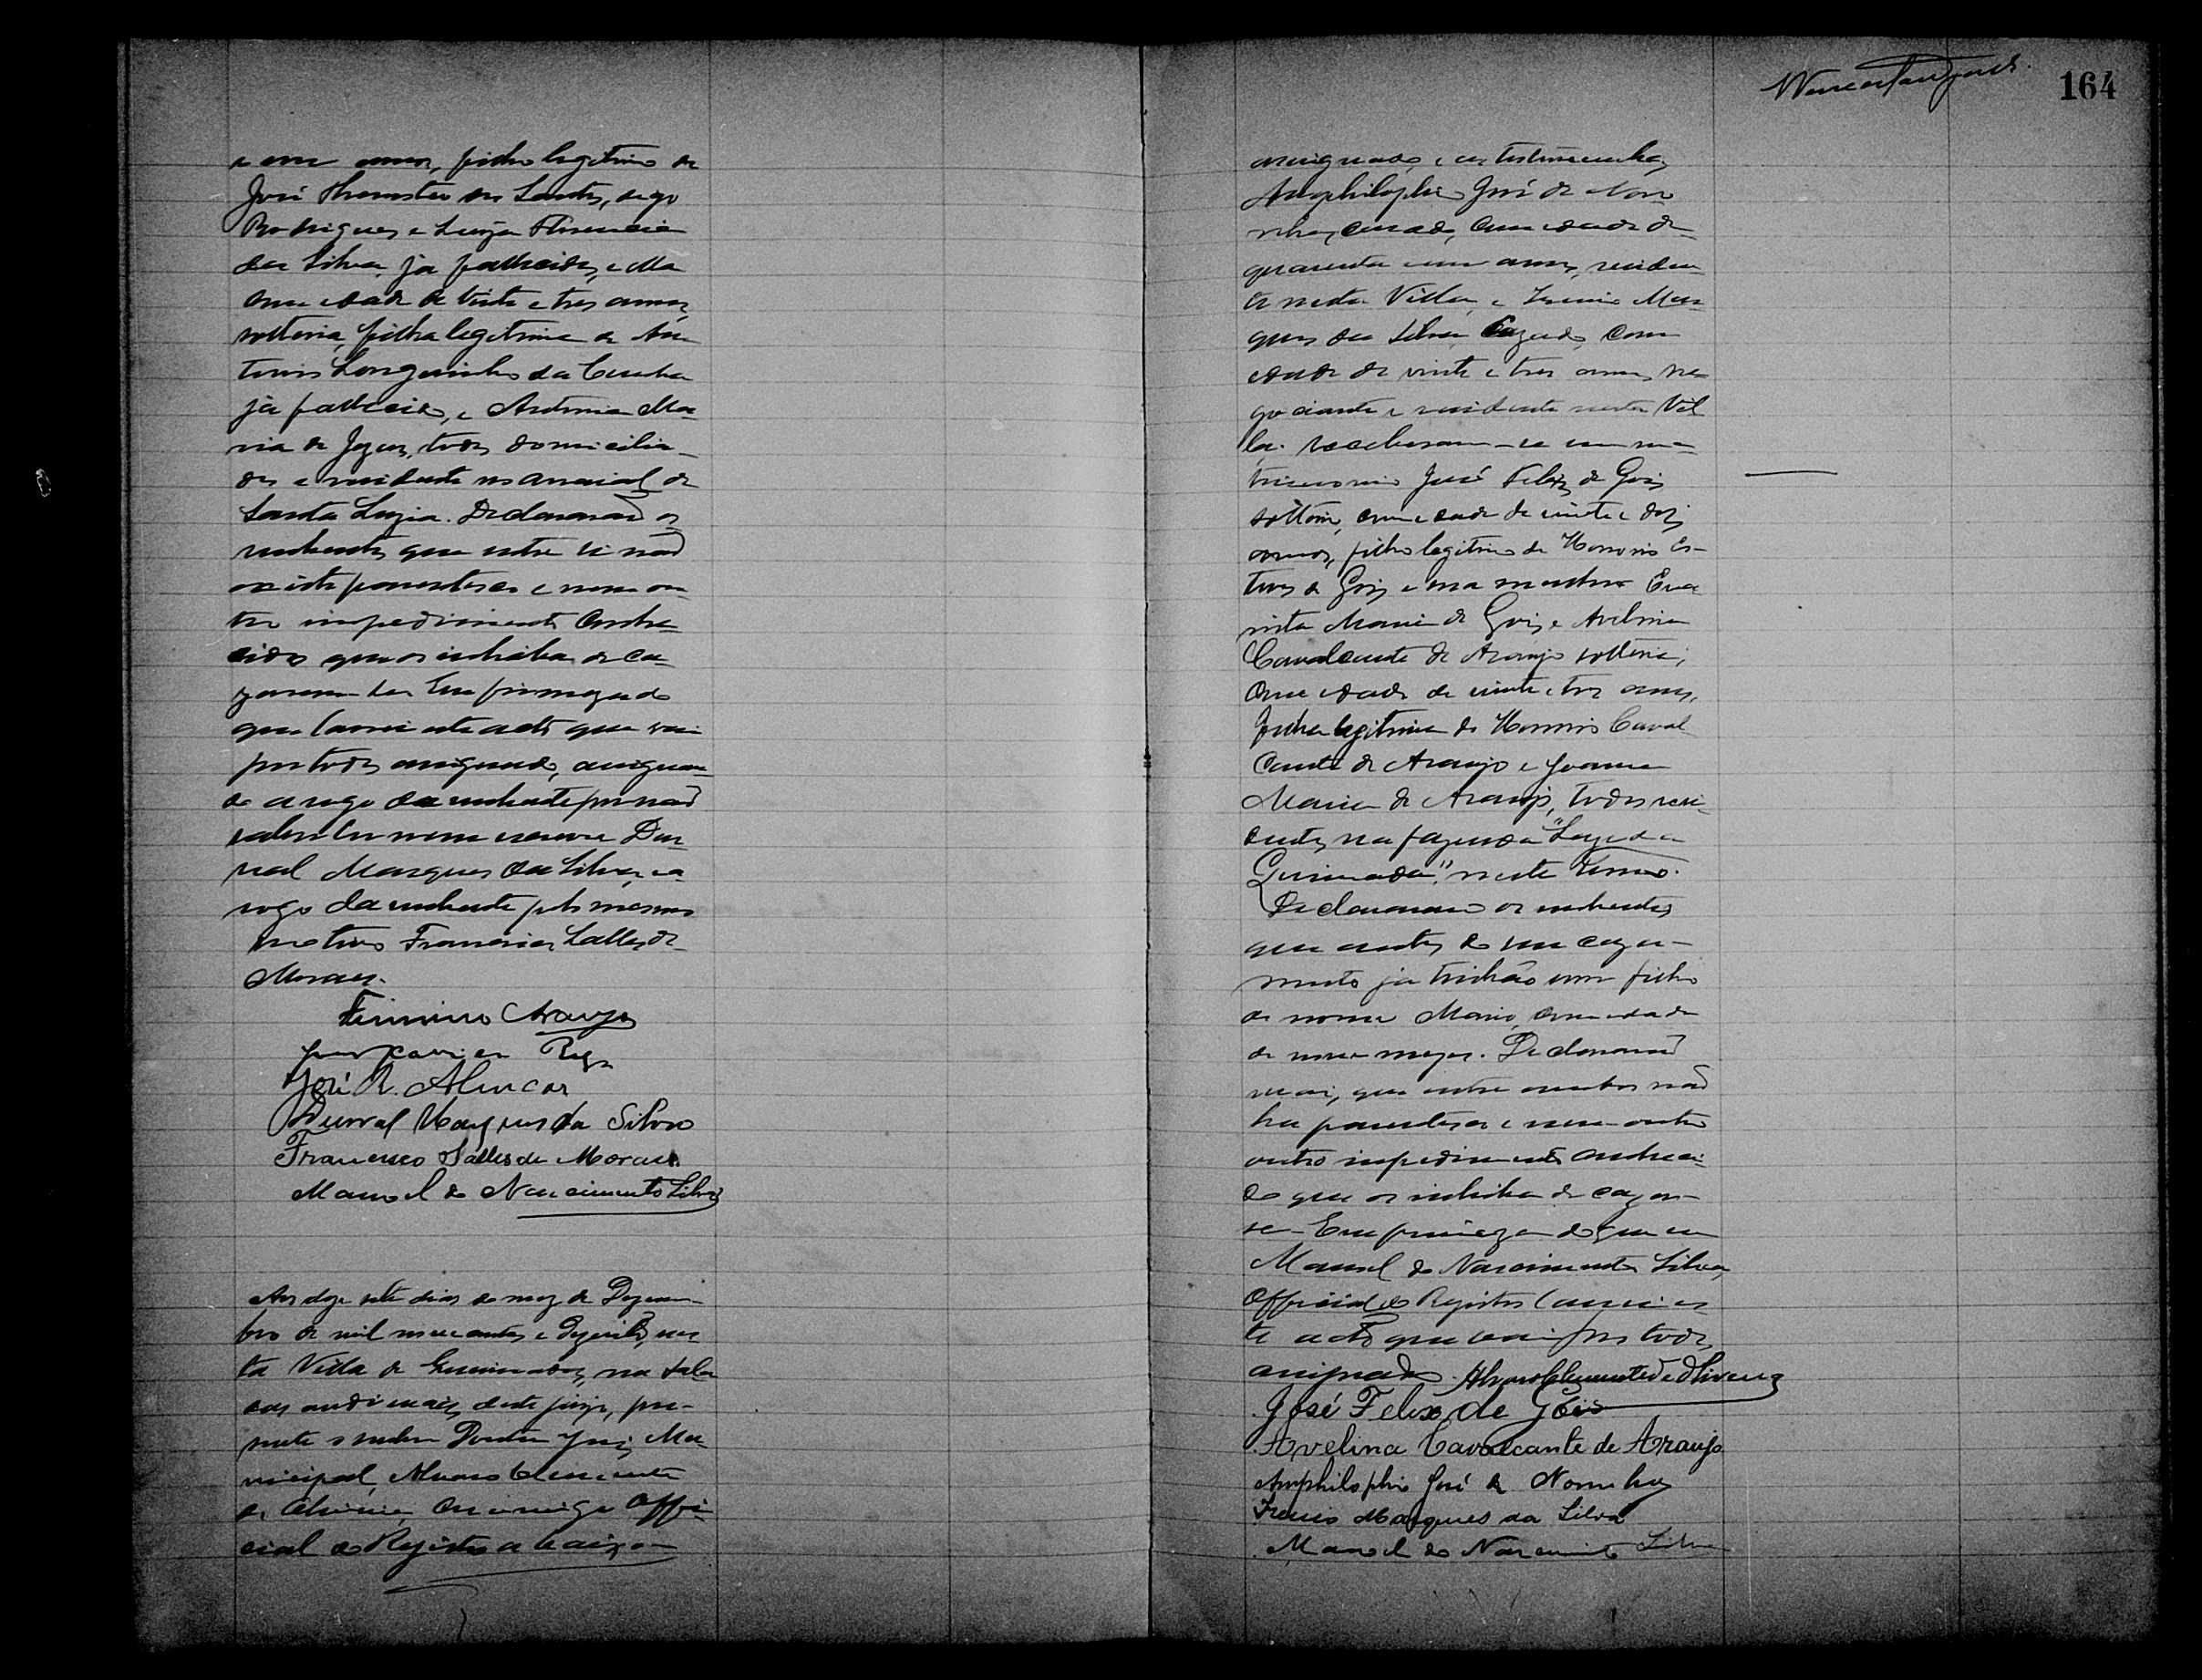 e um annos, filho legitimo de
José Themoteo dos Santos, digo
Rodrigues e Luiza Florencia
da Silva, já fallecidos, e Ma
com edade de vinte e tres annos,
solteria, filha legitima de An
tonio Longuinho da Cunha
já fallecido, e Antonia Ma-
ria de Jezus, todos domicilia-
dos e residente no arraial de
Santa Luzia. Declararaõ os
nubentes que entre si naõ
existe parentesco e nem ou
tro impedimento conhe-
cido que os inhiba de ca-
zarem-se. Em firmeza do
que lavrei este acto que vai
por todos assignado, assignan-
do a rogo do nubente por naõ
saber ler nem escrever Dur
val Marques da Silva, e a
rogo da nubente pelo mesmo
motivo Francisco Salles de
Moraes.
Firmino Araujo
José R. Alencar
Durval Marques da Silva
Francisco Salles de Moraes
Manoel do Nascimento Silva
Aos doze sete dias do mez de Dezem-
bro de mil novecentos e dezoito, nes
ta Villa de Queimadas, na sala
das audiencias deste juizo, pre-
sente o senhor Doutor Juiz Mu-
nicipal, Alvaro Clemente
de Oliveira, commigo Offi-
cial do Registro abaixo
164
assignado, e as testimunhas,
Amphilophio José de Noro
nha, casado, com edade de
quarenta e um annos, residen-
te nesta Villa, e Irenio Mar-
ques da Silva, cazado, com
edade de vinte e tres annos, ne-
gociante e residente nesta Vil
la. receberam-se em ma-
trimonio José Felix de Gois
solteiro, com edade de vinte e dois
annos, filho legitimo de Honorio Es-
teves de Gois e sua mulher Eva
rista Maria de Gois, e Avelina
Cavalcante de Araujo solteria,
com edade de vinte e tres annos,
filha legitima de Honorio Caval
cante de Araujo e Joanna
Maria de Araujo, todos resi-
dentes na fazenda "Lage da
Queimada", neste Termo.
Declararam os nubentes
que antes do seu caza-
mento já tinhão um filho
de nome Mario, com edade
de nove mezes. Declararaõ
mais, que entre ambos naõ
ha parentesco e nem outro
outro impedimento conheci-
do que os inhiba de cazar-
se. Em firmeza do que eu
Manoel do Nascimento Silva,
Official do Registro lavrei es-
te acto que vai por todos
assignado. Alvaro Clemente de Oliveira
José Felix de Góis
Avelina Cavalcante de Araujo
Amphilophio José de Noronha
Irenio Marques da Silva
Manoel do Nascimento Silva